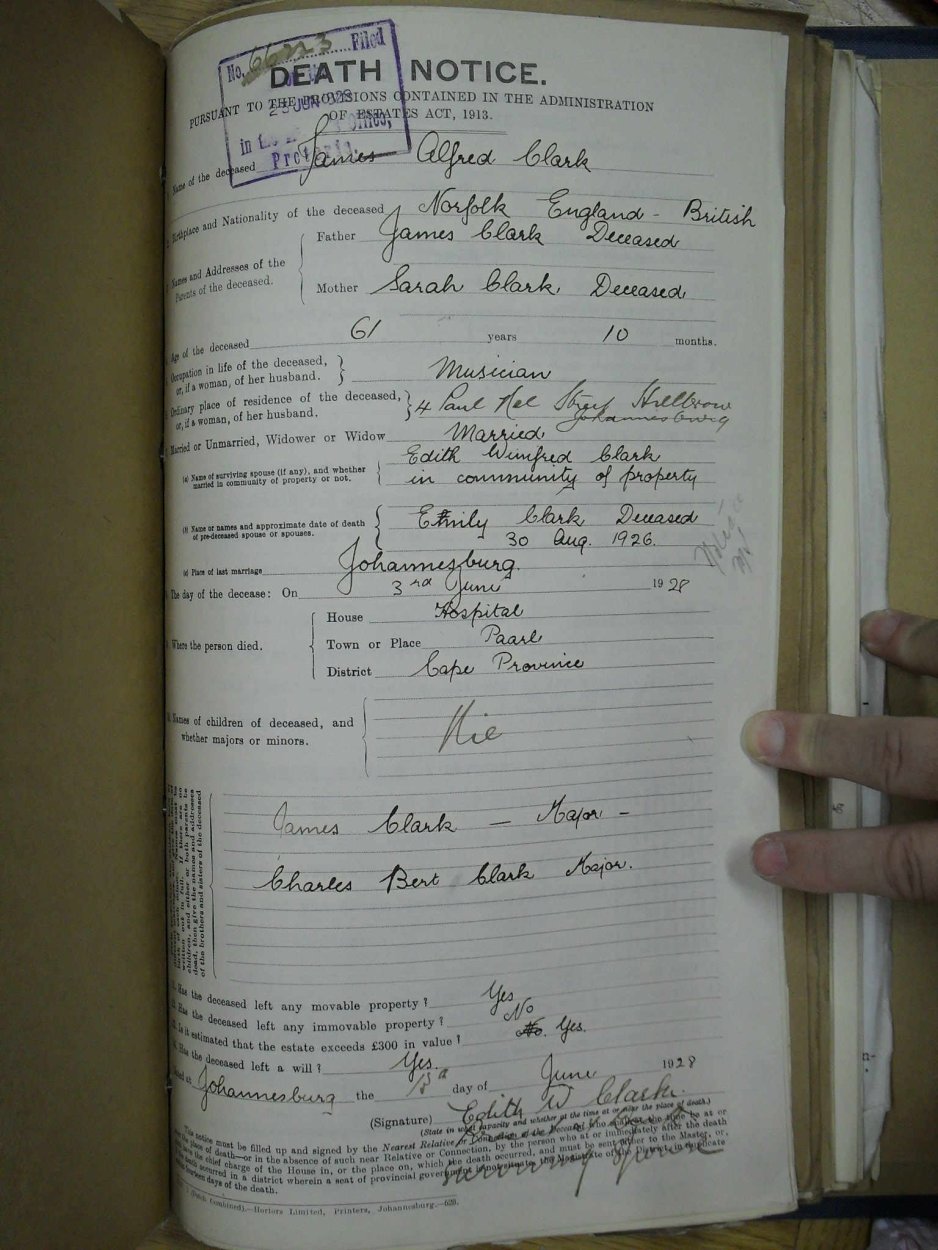 No. 66223 Filed
DEATH NOTICE.
25 JUN 1928
PURSUANT TO THE PROVISIONS CONTAINED IN THE ADMINISTRATION
OF ESTATES ACT, 1913.
in the
Pretoria.
Name of the deceased James Alfred Clark
Birthplace and Nationality of the deceased Norfolk England - British
Names and Addresses of the
Parents of the deceased.
Father James Clark Deceased
Mother Sarah Clark Deceased
Age of the deceased 61 years 10 months.
Occupation in life of the deceased,
or, if a woman, of her husband.
Musician
Ordinary place of residence of the deceased,
or, if a woman, of her husband.
4 Paul Nel Street Hillbrow
Johannesburg
Married or Unmarried, Widower or Widow Married
(a) Name of surviving spouse (if any), and whether
married in community of property or not.
Edith Winifred Clark
in community of property
(b) Name or names and approximate date of death
of pre-deceased spouse or spouses.
Emily Clark Deceased
30 Aug. 1926.
(c) Place of last marriage Johannesburg.
The day of the decease: On 3rd June 1928
Where the person died.
House Hospital
Town or Place Paarl
District Cape Province
Names of children of deceased, and
whether majors or minors.
James Clark — Major -
Charles Bert Clark Major.
children, and either or both parents be
dead, then give the names and addresses
of the brothers and sisters of the deceased
Has the deceased left any movable property? Yes
Has the deceased left any immovable property? No
Is it estimated that the estate exceeds £300 in value? No. Yes.
Has the deceased left a will? Yes.
Dated at Johannesburg the day of June 1928
(Signature) Edith W Clark.
(State in what capacity and whether at the time at or near the place of death.)
Surviving Spouse
This notice must be filled up and signed by the Nearest Relative or Connection of the Deceased who
place of death—or in the absence of such near Relative or Connection, by the person who at or immediately after the death
chief charge of the House in, or the place on, which the death occurred, and must be sent either to the Master, or,
death occurred in a district wherein a seat of provincial government is not situate, the Magistrate of the District, in duplicate
days of the death.
(Dutch Combined).—Hortors Limited, Printers, Johannesburg.—620.